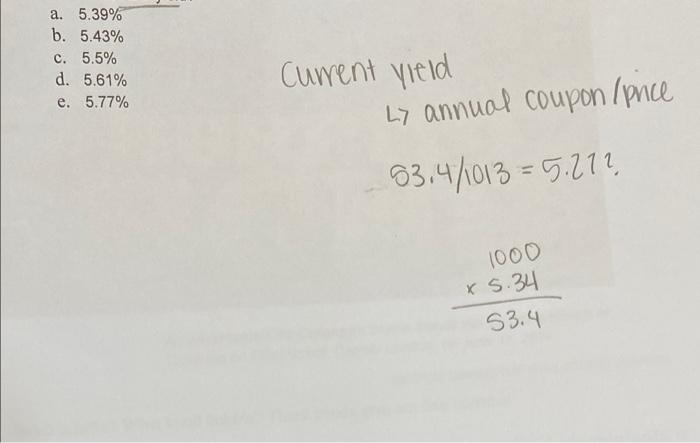 a. 5.39%
b. 5.43%
c. 5.5%
d. 5.61%
e. 5.77%
Current yield
↳ annual coupon/price
53.4/1013 = 5.27?
1000
x 5.34
53.4